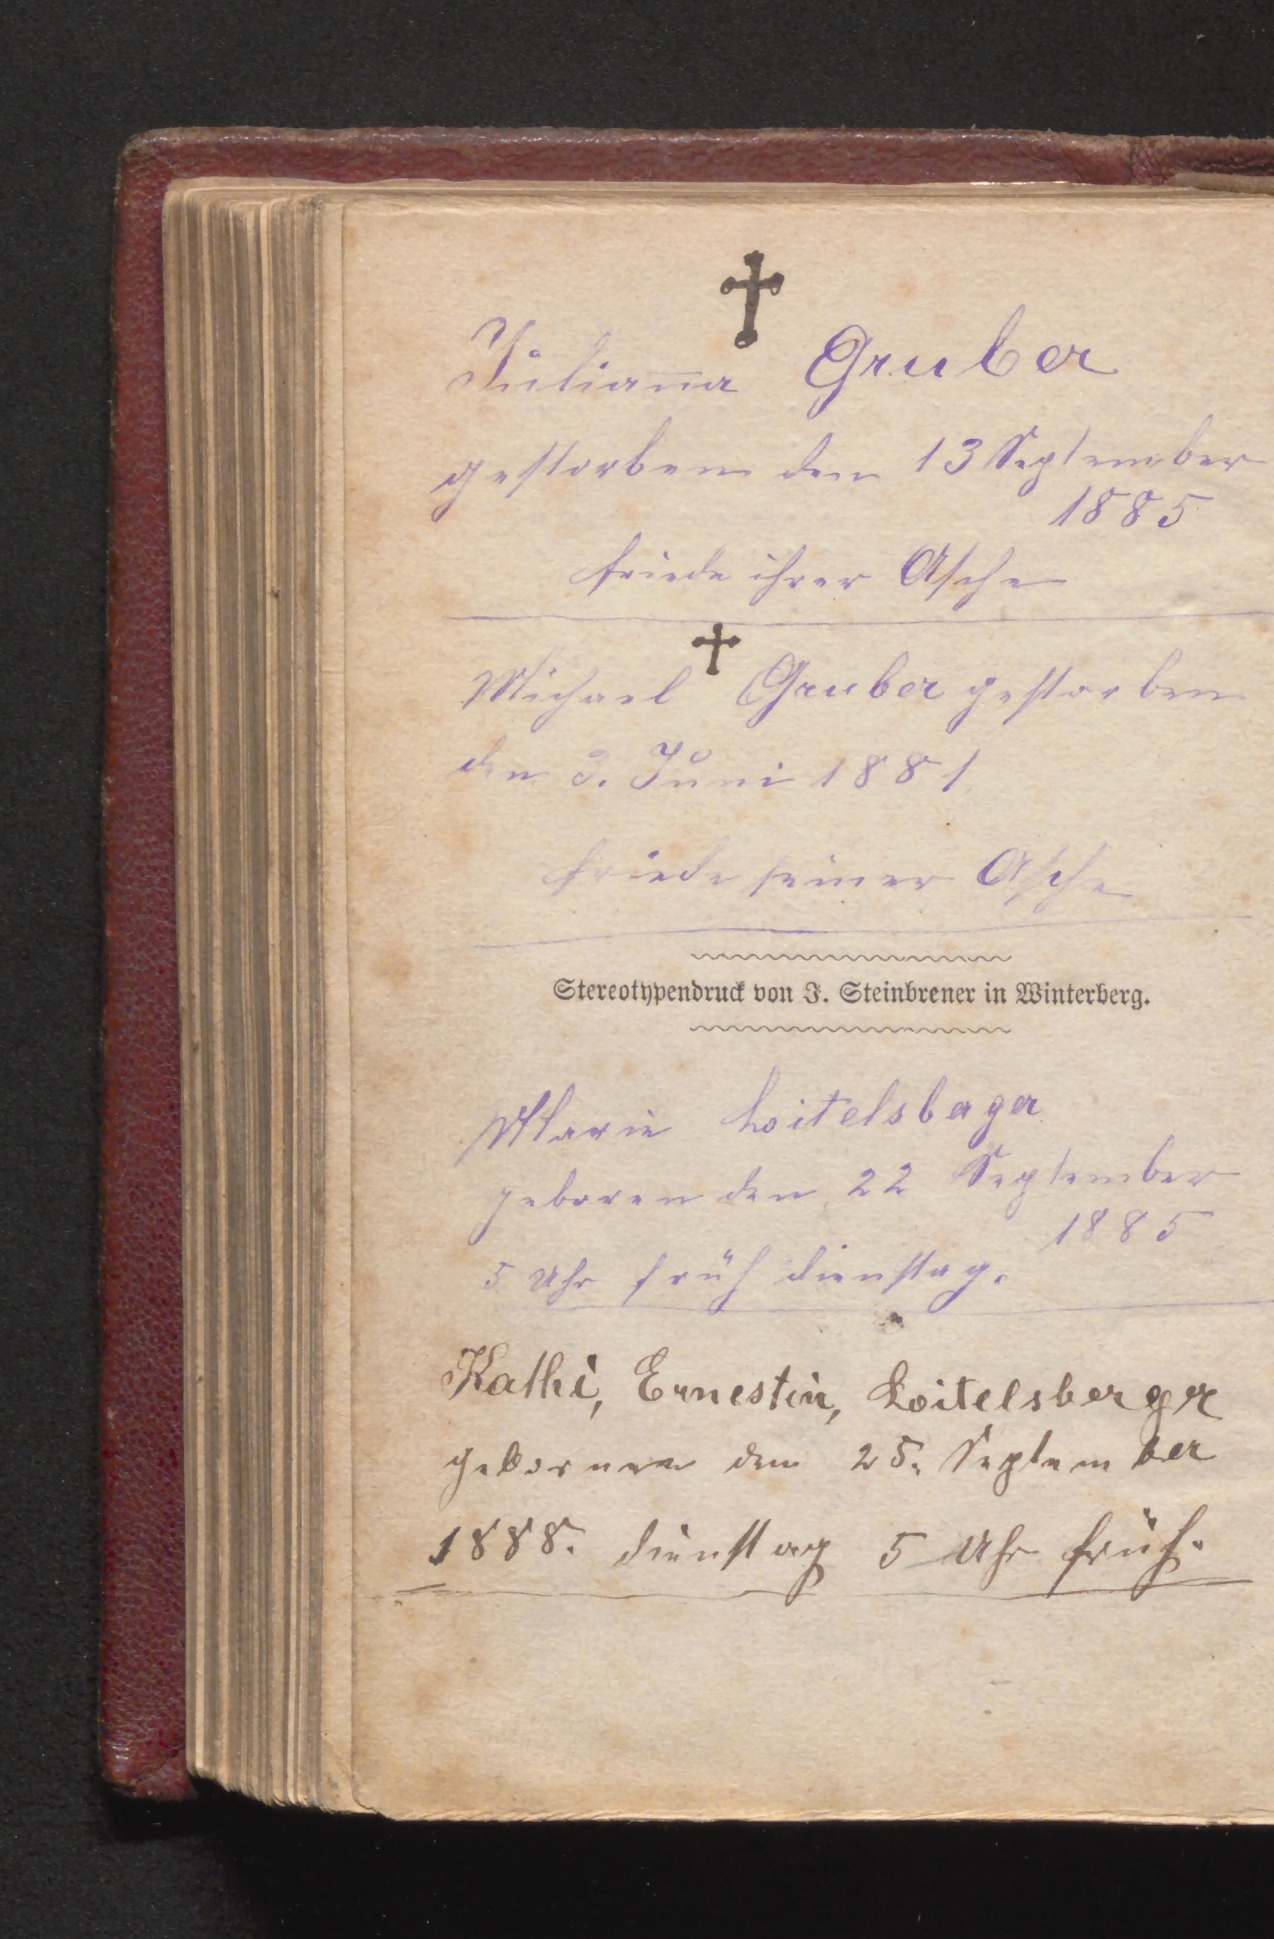 Juliana Gruber
gestorben den 13 September
1885
friede ihrer Asche
Michael Gruber gestorben
den 3. Juni 1881
friede seiner Asche
Stereotypendruck von J. Steinbrener in Winterberg.
Marie Loitelsbager
geboren den 22 September
1885
5 Uhr früh dienstag.
Kathi, Ernestin, Loitelsberger
geboren den 25. September
1888. dienstag 5 Uhr früh.